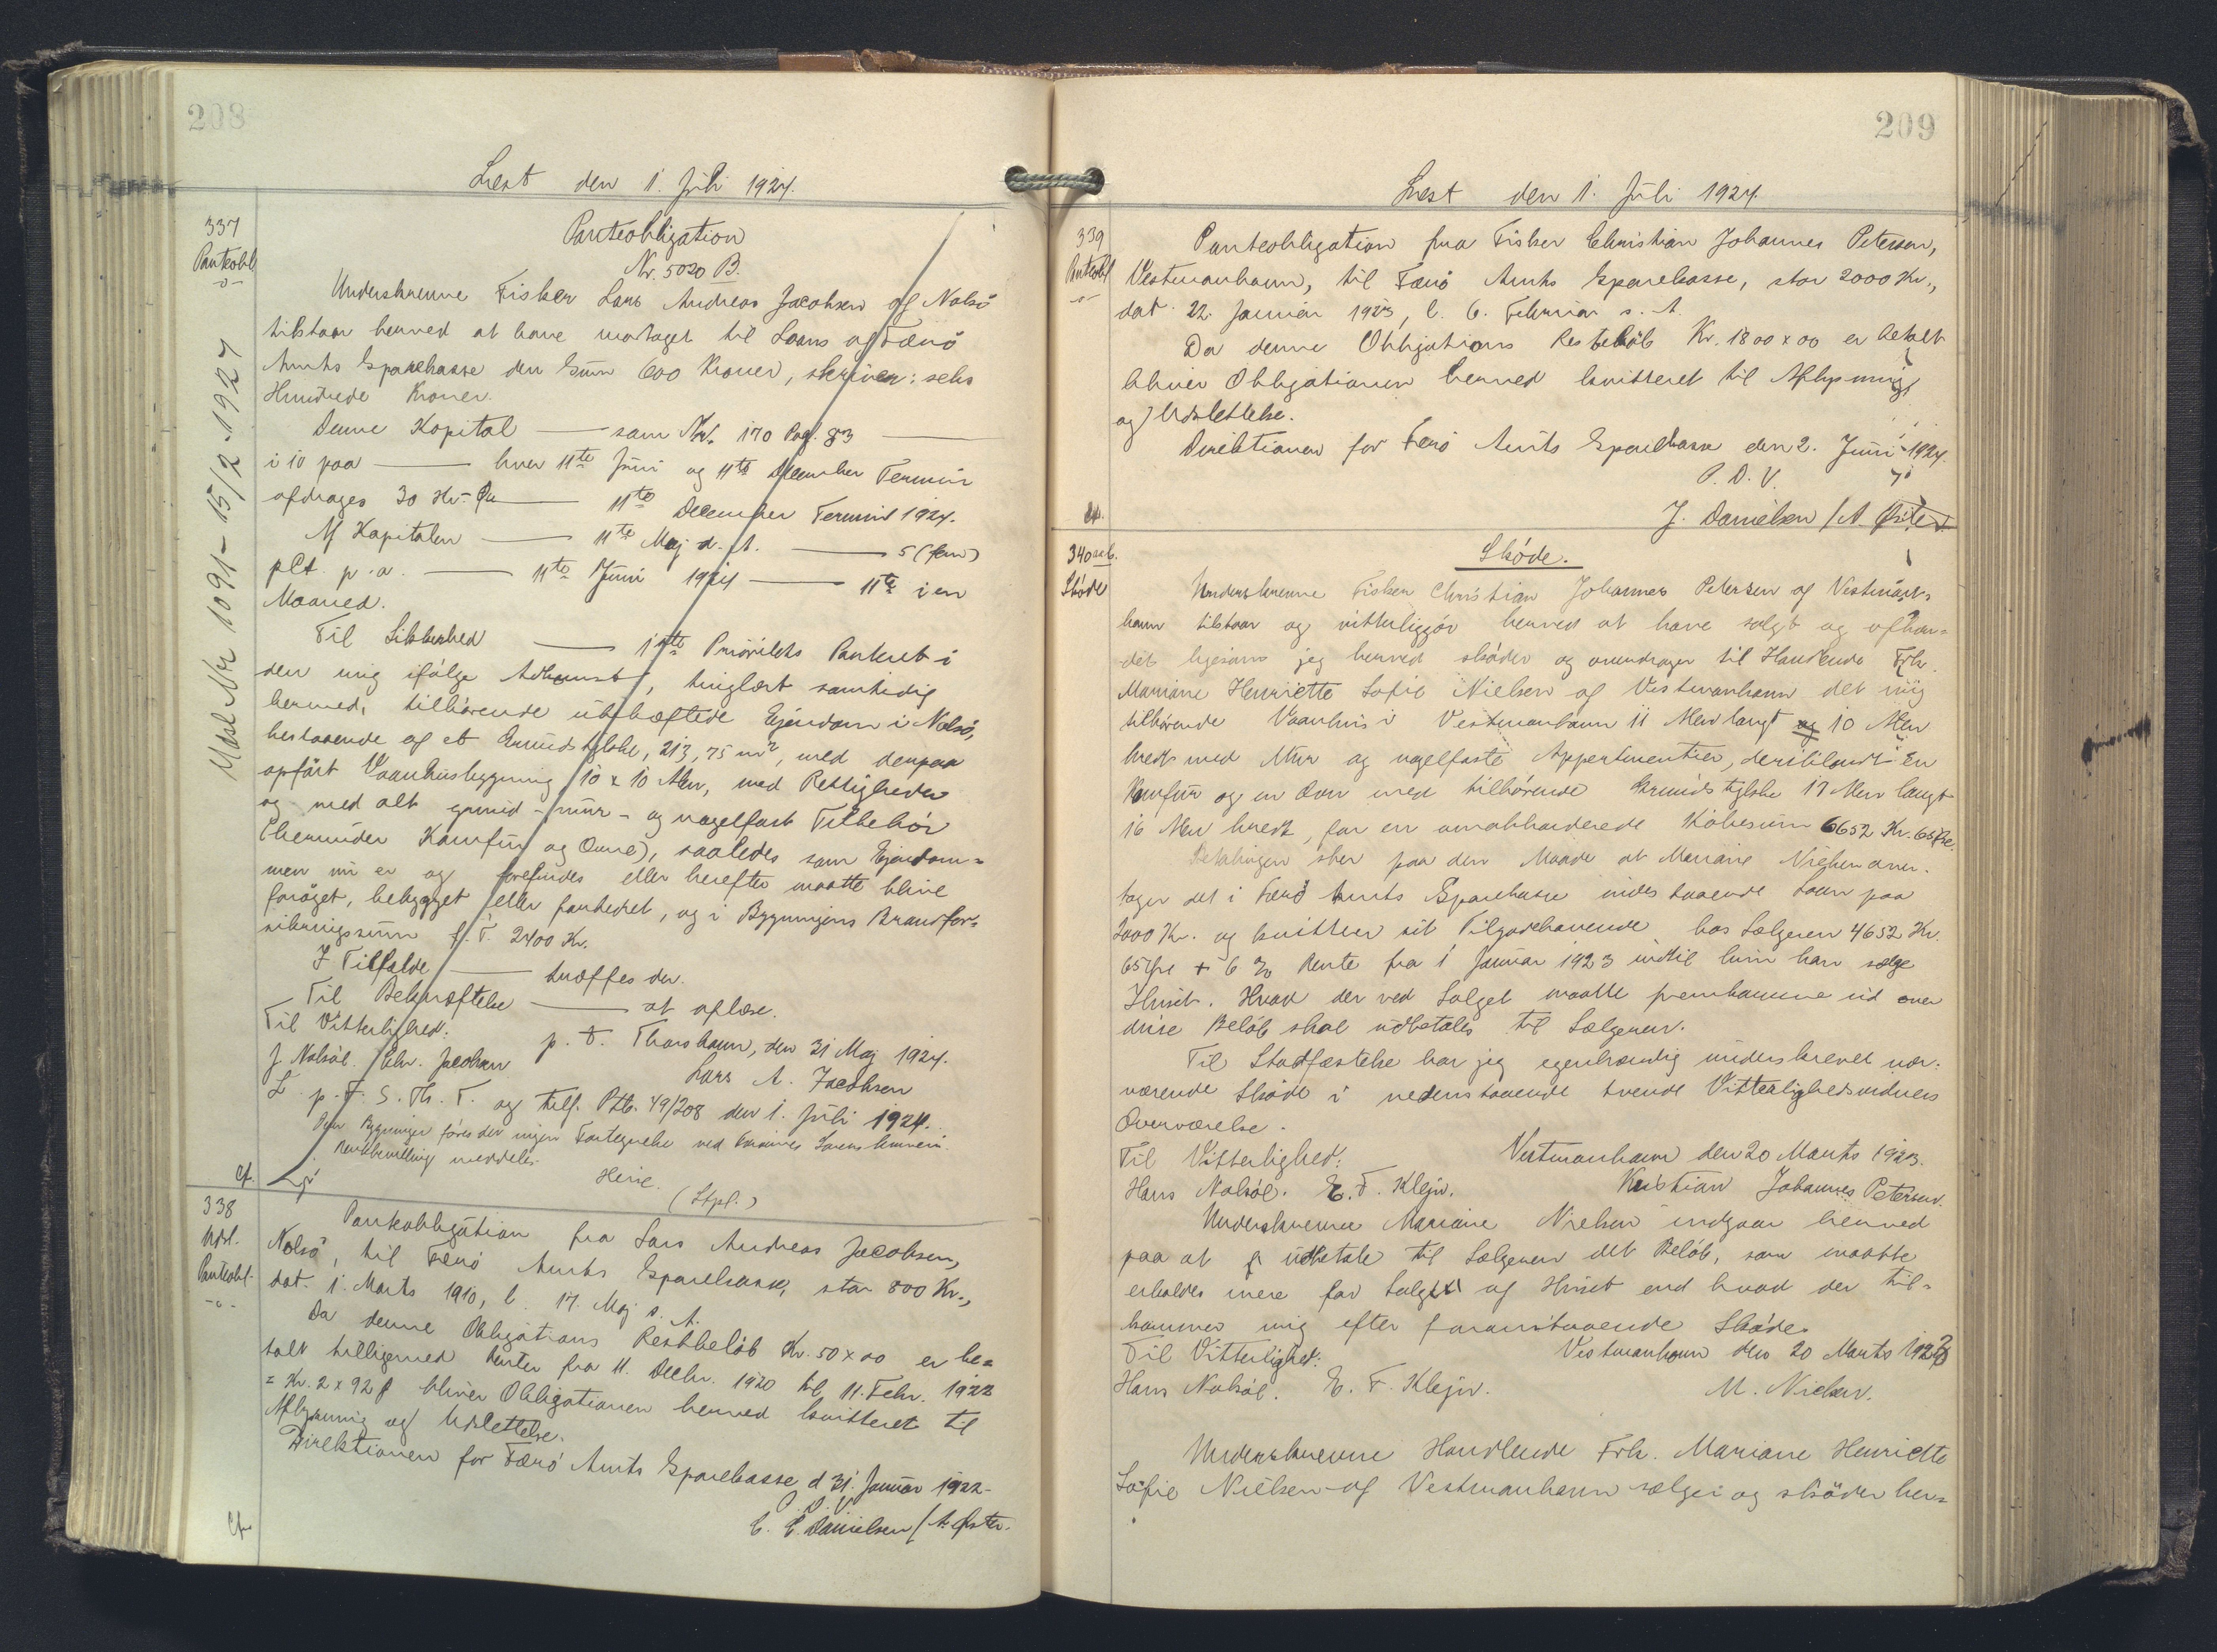 208
Læst den 1. Juli 1924.
337
Panteobl.
Udsl. Nr. 1091 - 15/2 - 1927
Panteobligation
Nr. 5020 B.
Underskrevne Fisker Lars Andreas Jacobsen af Nolsö
tilstaar herved at have modtaget til Laans af Færö
Amts Sparekasse den Sum 600 Kroner, skriver: seks
Hundrede Kroner.
Denne Kapital — som Nr. 170 Pag. 83 —
i 10 paa — hver 11te Juni og 11te December Termin
afdrages 30 Kr. — 11te December Termin 1924.
Af Kapitalen — 11te Maj d. A. — 5 (fem)
pCt. p. a. — 11te Juni 1924 — 11te i en
Maaned.
Til Sikkerhed — 1ste Prioritets Panteret i
den mig ifølge Adkomst, tinglæst samtidig
hermed, tilhörende ubehæftede Ejendom i Nolsö,
bestaaende af et Grundstykke, 213,75 m², med derpaa
opfört Vaanhusbygning 10 x 10 Alen, med Rettigheder
og med alt grund- mur- og nagelfast Tilbehör
(herunder Komfur og Ovne), saaledes som Ejendom=
men nu er og forefindes eller herefter maatte blive
forøget, bebygget eller forbedret, og i Bygningens Brandfor=
sikringssum f. T. 2400 Kr.
I Tilfælde — træffes der.
Til Bekræftelse — at aflæse.
Til Vitterlighed: p. t. Thorshavn, den 31 Maj 1924.
J. Nolsöe. Chr. Jacobsen Lars A. Jacobsen
L. p. F. S. Th. T. og tilf. Ptb. 49/208 den 1. Juli 1924.
Over Bygninger føres der ingen Fortegnelse ved Færøernes Sorenskriveri.
meddeles.
Heise.
(Stpl.)
Cf.
338
Udsl.
Panteobl.
-o-
Panteobligation fra Lars Andreas Jacobsen,
Nolsö, til Færö Amts Sparekasse, stor 800 Kr.,
dat. 1. Marts 1910, l. 17. Maj s. A.
Da denne Obligations Restbelöb Kr. 50 x 00 er be=
talt tilligemed Renter fra 11. Decbr. 1920 til 11. Febr. 1922
= Kr. 2 x 92 bliver Obligationen herved kvitteret til
Aflysning og Udslettelse.
Direktionen for Færö Amts Sparekasse d 31. Januar 1922.
P. D. V.
C. E. Danielsen / A. Öster.
Cf.
209
Læst den 1. Juli 1924.
339
Panteobl.
Panteobligation fra Fisker Christian Johannes Petersen,
Vestmanhavn, til Færö Amts Sparekasse, stor 2000 Kr.,
dat. 22. Januar 1923, l. 6. Februar s. A.
Da denne Obligations Restbelöb Kr. 1800 x 00 er betalt
bliver Obligationen herved kvitteret til Aflysning
og Udslettelse.
Direktionen for Færö Amts Sparekasse den 2. Juni 1924.
P. D. V.
J. Danielsen / A Öster
Cf.
340
Sköde
Sköde.
Underskrevne Fisker Christian Johannes Petersen af Vestman=
havn tilstaar og vitterliggör herved at have solgt og afhæn=
det ligesom jeg herved sköder og overdrager til Handlende Frk.
Mariane Henriette Sofie Nielsen af Vestmanhavn det mig
tilhörende Vaanhus i Vestmanhavn 11 Alen langt og 10 Alen
bredt med Mur og nagelfaste Appertinentier, En
Komfur og en Ovn med tilhörende Grundstykke 17 Alen langt
16 Alen bredt, for en omakkorderede Köbesum 6652 Kr. 65 Öre.
Betalingen sker paa den Maade at Mariane Nielsen over-
tager det i Færö Amts Sparekasse indestaaende Laan paa
2000 Kr. og kvitterer sit Tilgodehavende hos Sælgeren 4652 Kr.
65 Öre + 6 % Rente fra 1 Januar 1923 indtil hun kan sælge
Huset. Hvad der ved Salget maatte fremkomme ud over
disse Belöb skal udbetales til Sælgeren.
Til Stadfæstelse har jeg egenhændig underskrevet nær-
værende Sköde i nedenstaaende tvende Vitterlighedsvidners
Overværelse.
Til Vitterlighed: Vestmanhavn den 20 Marts 1923.
Hans Nolsöe. E. F. Klejn. Kristian Johannes Petersen.
Underskrevne Mariane Nielsen indgaar herved
paa at udbetale til Sælgeren det Belöb, som maatte
erholdes mere for Salget af Huset end hvad der til=
kommer mig efter foranstaaende Sköde.
Til Vitterlighed: Vestmanhavn den 20 Marts 1923
Hans Nolsöe. E. F. Klejn. M. Nielsen.
Underskrevne Handlende Frk. Mariane Henriette
Sofie Nielsen af Vestmanhavn sælger og sköder her=